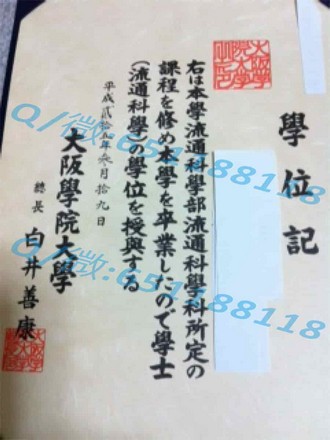 學位記
右は本學流通科學部流通科學科所定の
課程を修め本學を卒業したので學士
(流通科學)の學位を授與する
平成貳拾五年參月拾九日
大阪學院大學
總長 白井善康
Q/微:
Q/微: